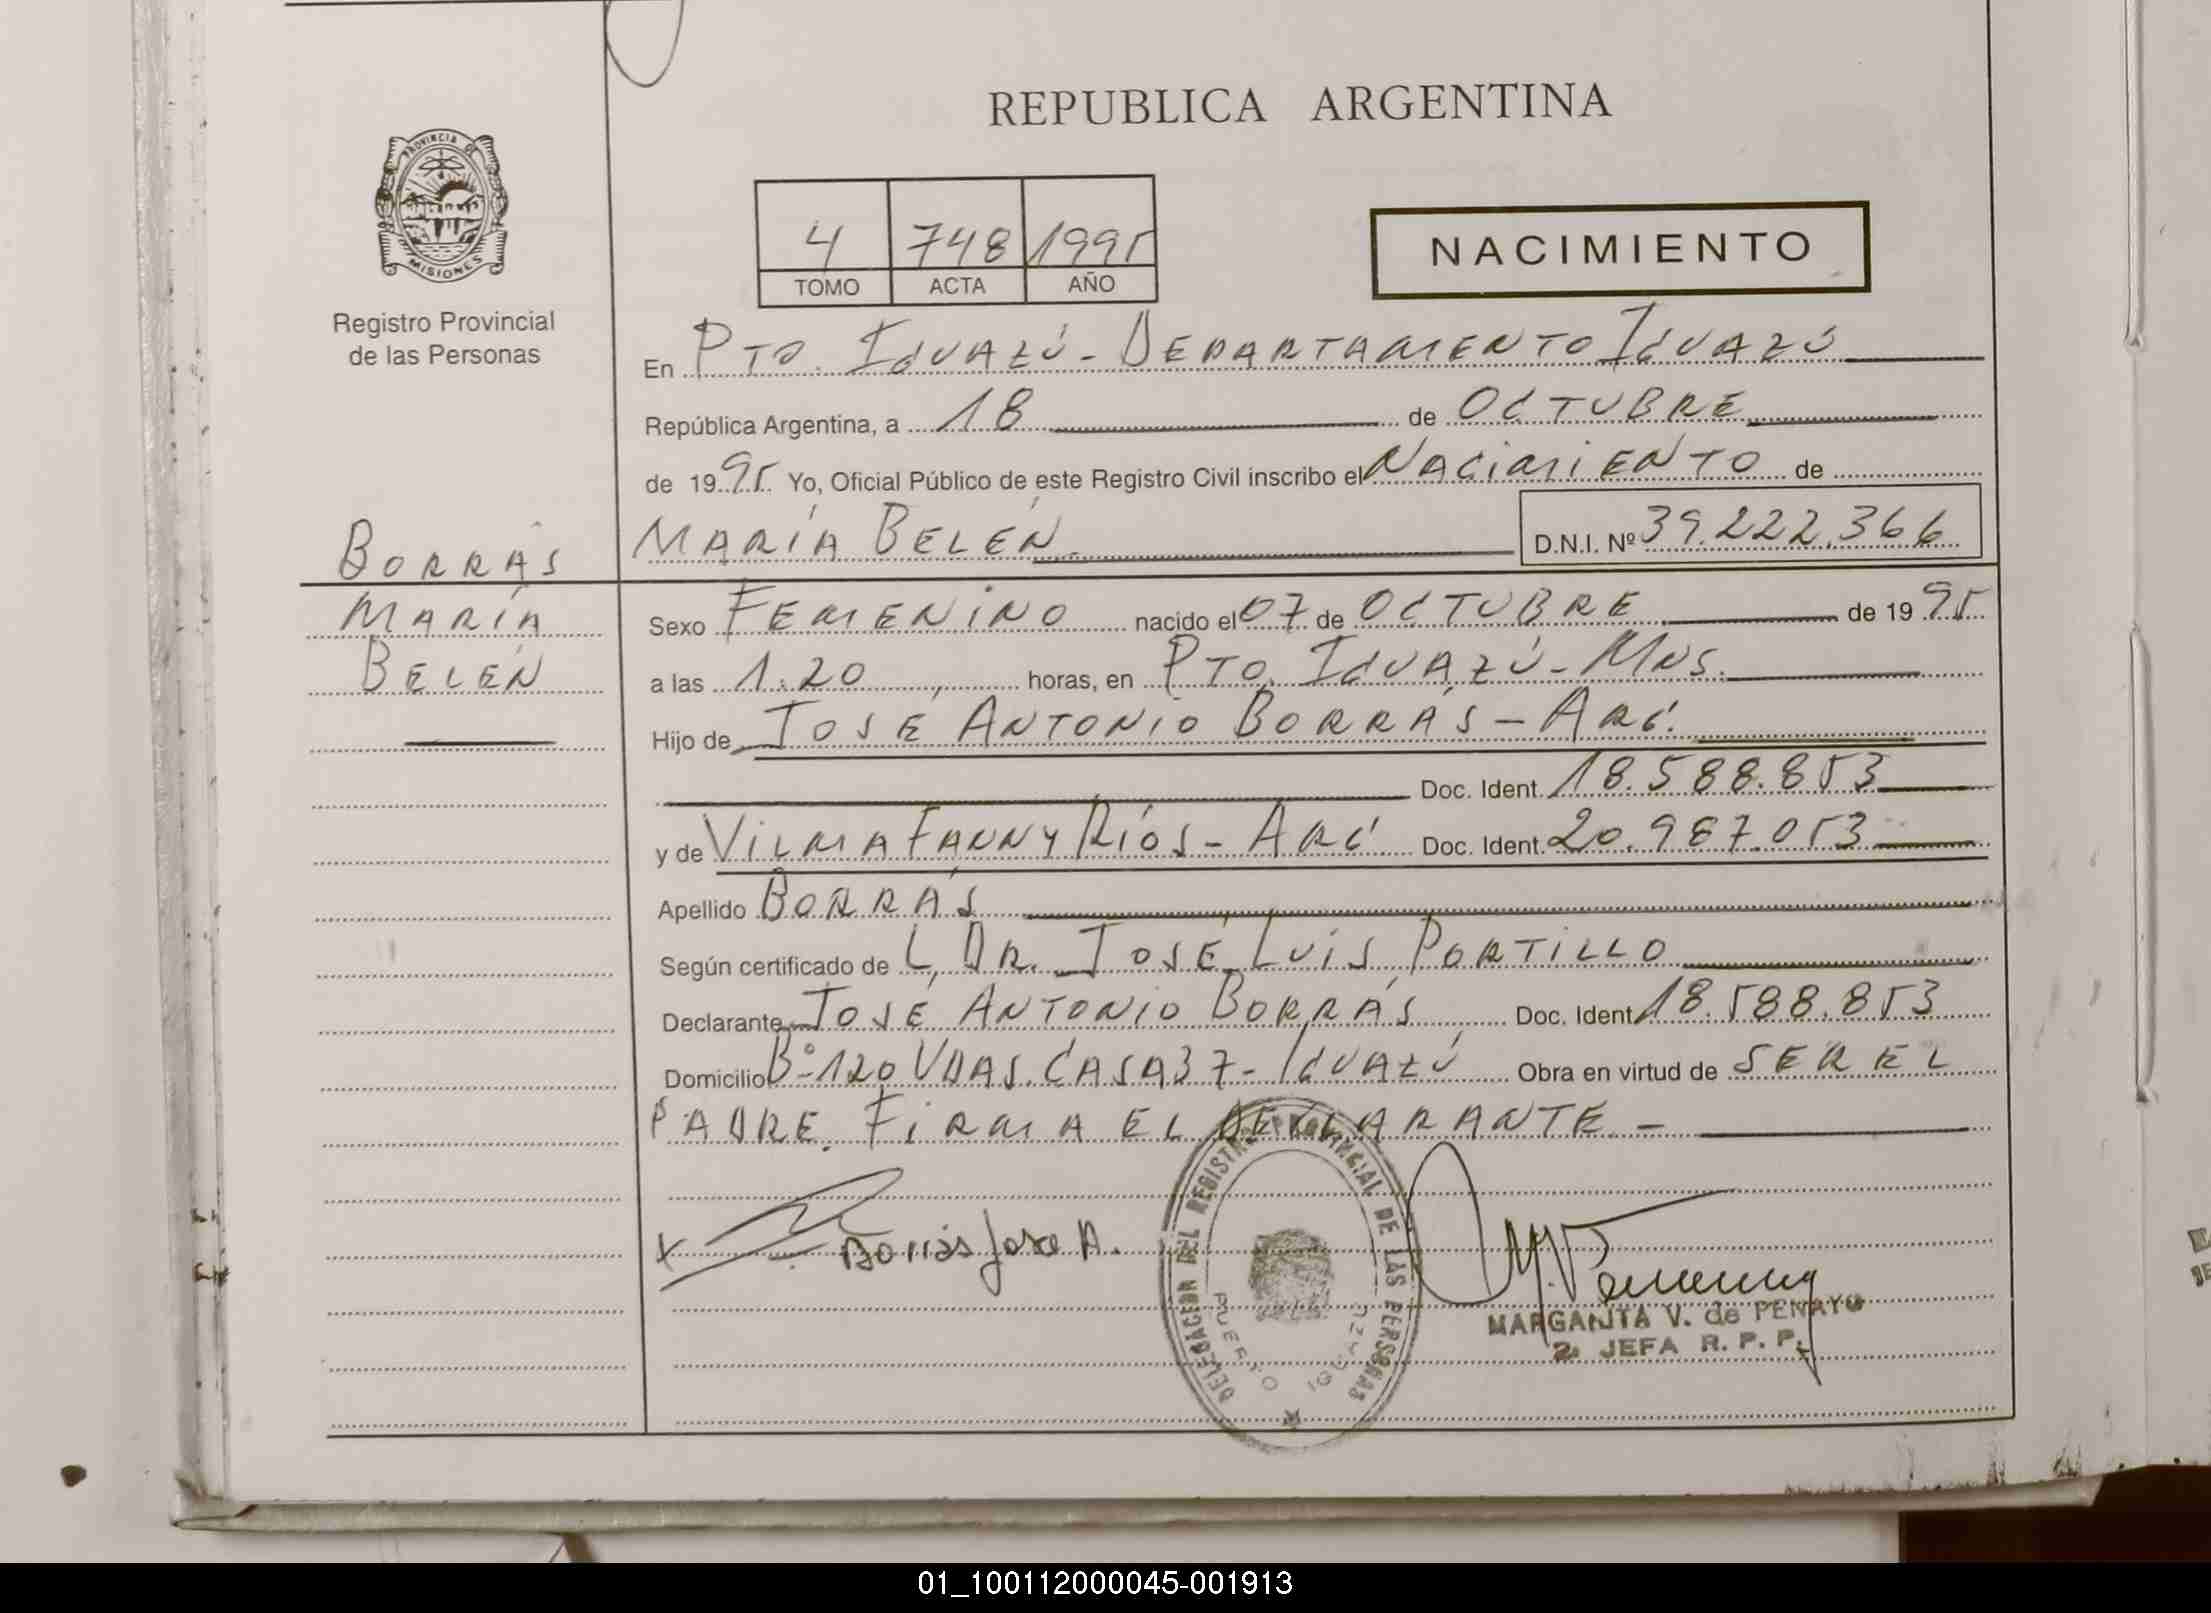 REPUBLICA ARGENTINA
PROVINCIA DE
MISIONES
Registro Provincial
de las Personas
4 748 1995
TOMO ACTA AÑO
NACIMIENTO
En PTO. IGUAZÚ - DEPARTAMENTO IGUAZÚ
República Argentina, a 18 de OCTUBRE
de 1995 Yo, Oficial Público de este Registro Civil inscribo el NACIMIENTO de
MARÍA BELÉN D.N.I. Nº 39.222.366
BORRÁS
MARÍA
BELÉN
Sexo FEMENINO nacido el 07 de OCTUBRE de 1995
a las 1.20 horas, en PTO. IGUAZÚ - MNS.
Hijo de JOSÉ ANTONIO BORRÁS - ARG.
Doc. Ident. 18.588.853
y de VILMA FANNY RÍOS - ARG Doc. Ident. 20.987.053
Apellido BORRÁS
Según certificado de L, DR. JOSÉ LUIS PORTILLO
Declarante JOSÉ ANTONIO BORRÁS Doc. Ident 18.588.853
Domicilio Bº 120 VDAS. CASA 37 - IGUAZÚ Obra en virtud de SER EL
PADRE. FIRMA EL DECLARANTE -
x Borras Jose A.
DELEGACION DEL REGISTRO PROVINCIAL DE LAS PERSONAS
PUERTO IGUAZU
MARGARITA V. de PENAYO
2. JEFA R. P. P.
01_100112000045-001913